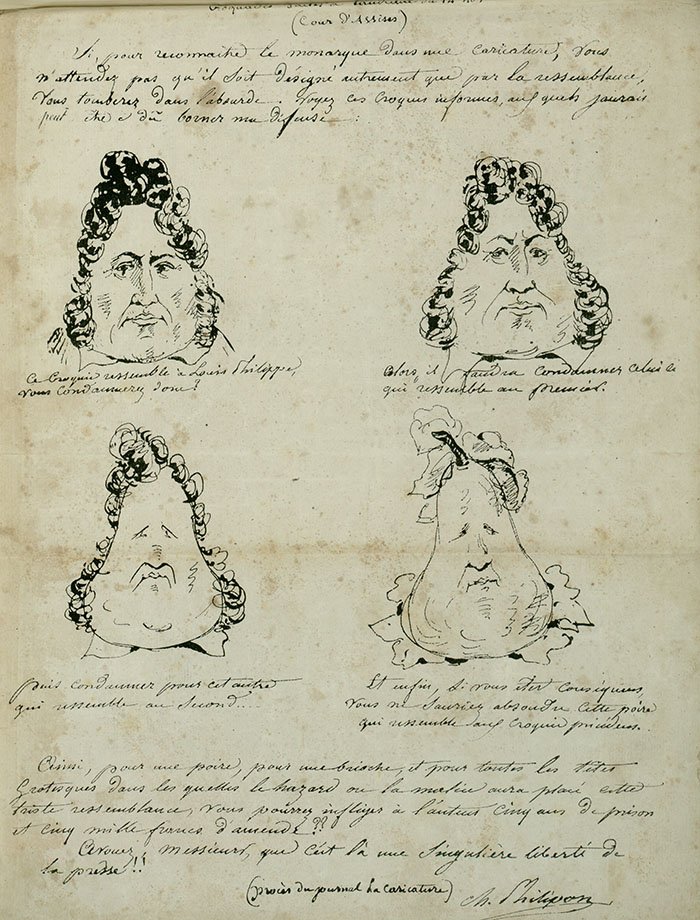 (Cour d'Assises)
Si, pour reconnaitre le monarque dans une caricature, vous
n'attendez pas qu'il soit désigné autrement que par la ressemblance,
vous tomberez dans l'absurde. Voyez ces croquis informes, auxquels j'aurais
peut être dû borner ma défense :
Ce croquis ressemble à Louis Philippe,
vous condamnerez donc ?
Alors il faudra condamner celui ci
qui ressemble au premier.
Puis condamner pour cet autre
qui ressemble au second...
Et enfin, si vous êtes conséquens,
vous ne sauriez absoudre cette poire
qui ressemble aux croquis précédens.
Ainsi, pour une poire, pour une brioche, et pour toutes les têtes
grotesques dans lesquelles le hazard ou la malice aura placé cette
triste ressemblance, vous pourrez infliger à l'auteur cinq ans de prison
et cinq mille francs d'amende ??
Avouez, Messieurs, que c'est là une singulière liberté de
la presse !!
(procès du journal La caricature)
Ch. Philipon